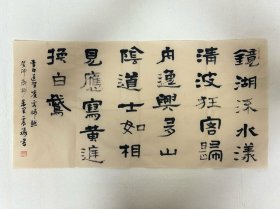 鏡湖流水漾
清波狂客歸
舟逸興多山
陰道士如相
見應寫黃庭
換白鵞
李白送賀賓客歸越
癸卯
書